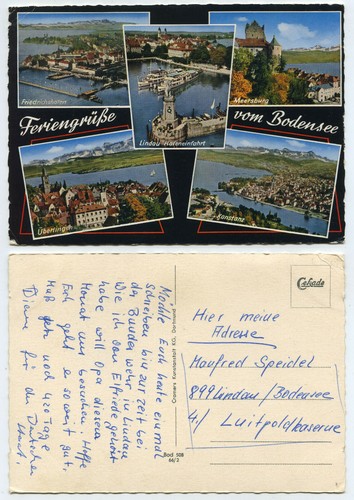 Friedrichshafen
Lindau - Hafeneinfahrt
Meersburg
Feriengrüße
vom Bodensee
Überlingen
Konstanz
Möchte Euch heute einmal
schreiben bin zur Zeit bei
der Bundeswehr in Lindau
Wie ich von Elfriede gehört
habe will Opa diesen
Monat uns besuchen. Hoffe
Euch geht es so weit gut.
Muß jetzt noch 420 Tage
Dienen für den Deutschen
Staat.
Cramers Kunstanstalt KG, Dortmund
Bod 508
66/3
Cekade
Hier meine
Adresse
Manfred Speidel
899 Lindau/Bodensee
4./ Luitpoldkaserne